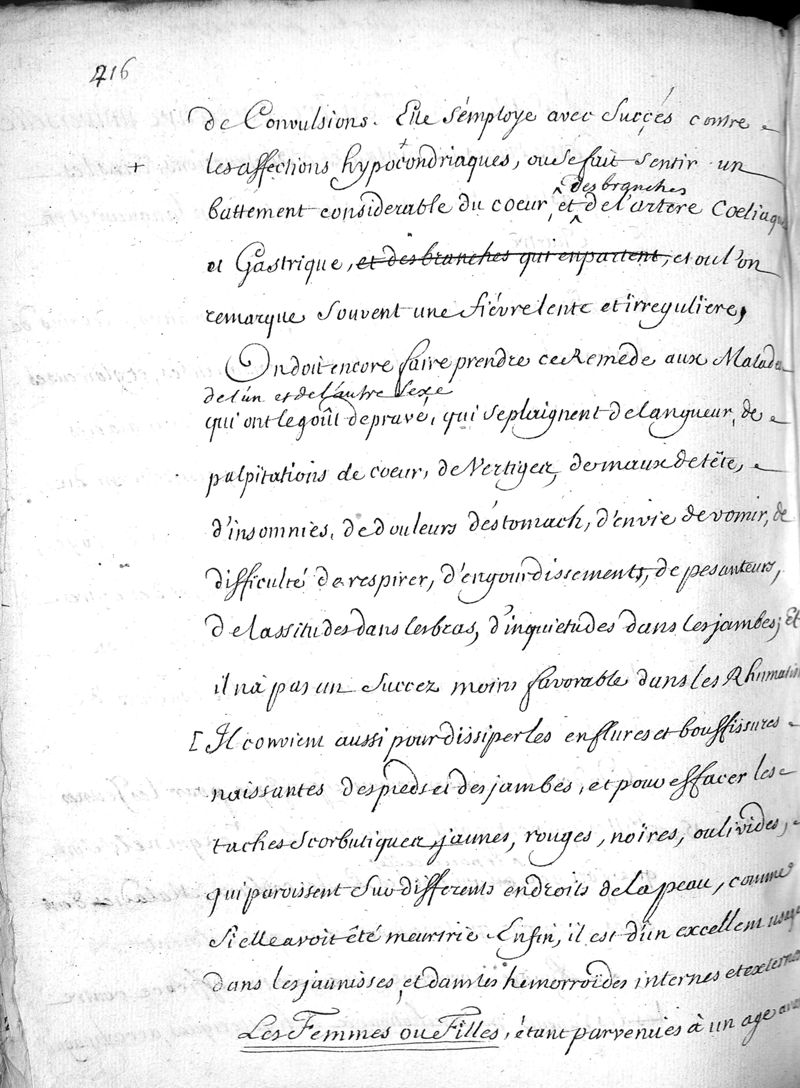 216
de Convulsions. Elle s'employe avec Succés contre
+ les affections hypocondriaques, ou se fait sentir un
des branches
battement considerable du coeur, et de l'artere Coeliaque
et Gastrique, et des branches qui en partent, et ou l'on
remarque Souvent une fiévre lente et irreguliere,
On doit encore faire prendre ce Remede aux Malades
de l'un et de l'autre Sexe
qui ont le goût depravé, qui se plaignent de langueur, de
palpitations de coeur, de Vertiges, de maux de tête,
d'insomnies, de douleurs d'estomach, d'envie de vomir, de
difficulté de respirer, d'engourdissements, de pesanteurs,
de lassitudes dans les bras, d'inquietudes dans les jambes; Et
il n'a pas un Succez moins favorable dans les
[ Il convient aussi pour dissiper les enflures et bouffissures
naissantes des pieds et des jambes, et pour effacer les
taches Scorbutiques, jaunes, rouges, noires, ou livides,
qui paroissent Sur differents endroits de la peau, comme
Si elle avoit été meurtrie Enfin, il est d'un excellent usage
dans les jaunisses, et dans les hemorroïdes internes et externes
Les Femmes ou Filles, étant parvenues à un age